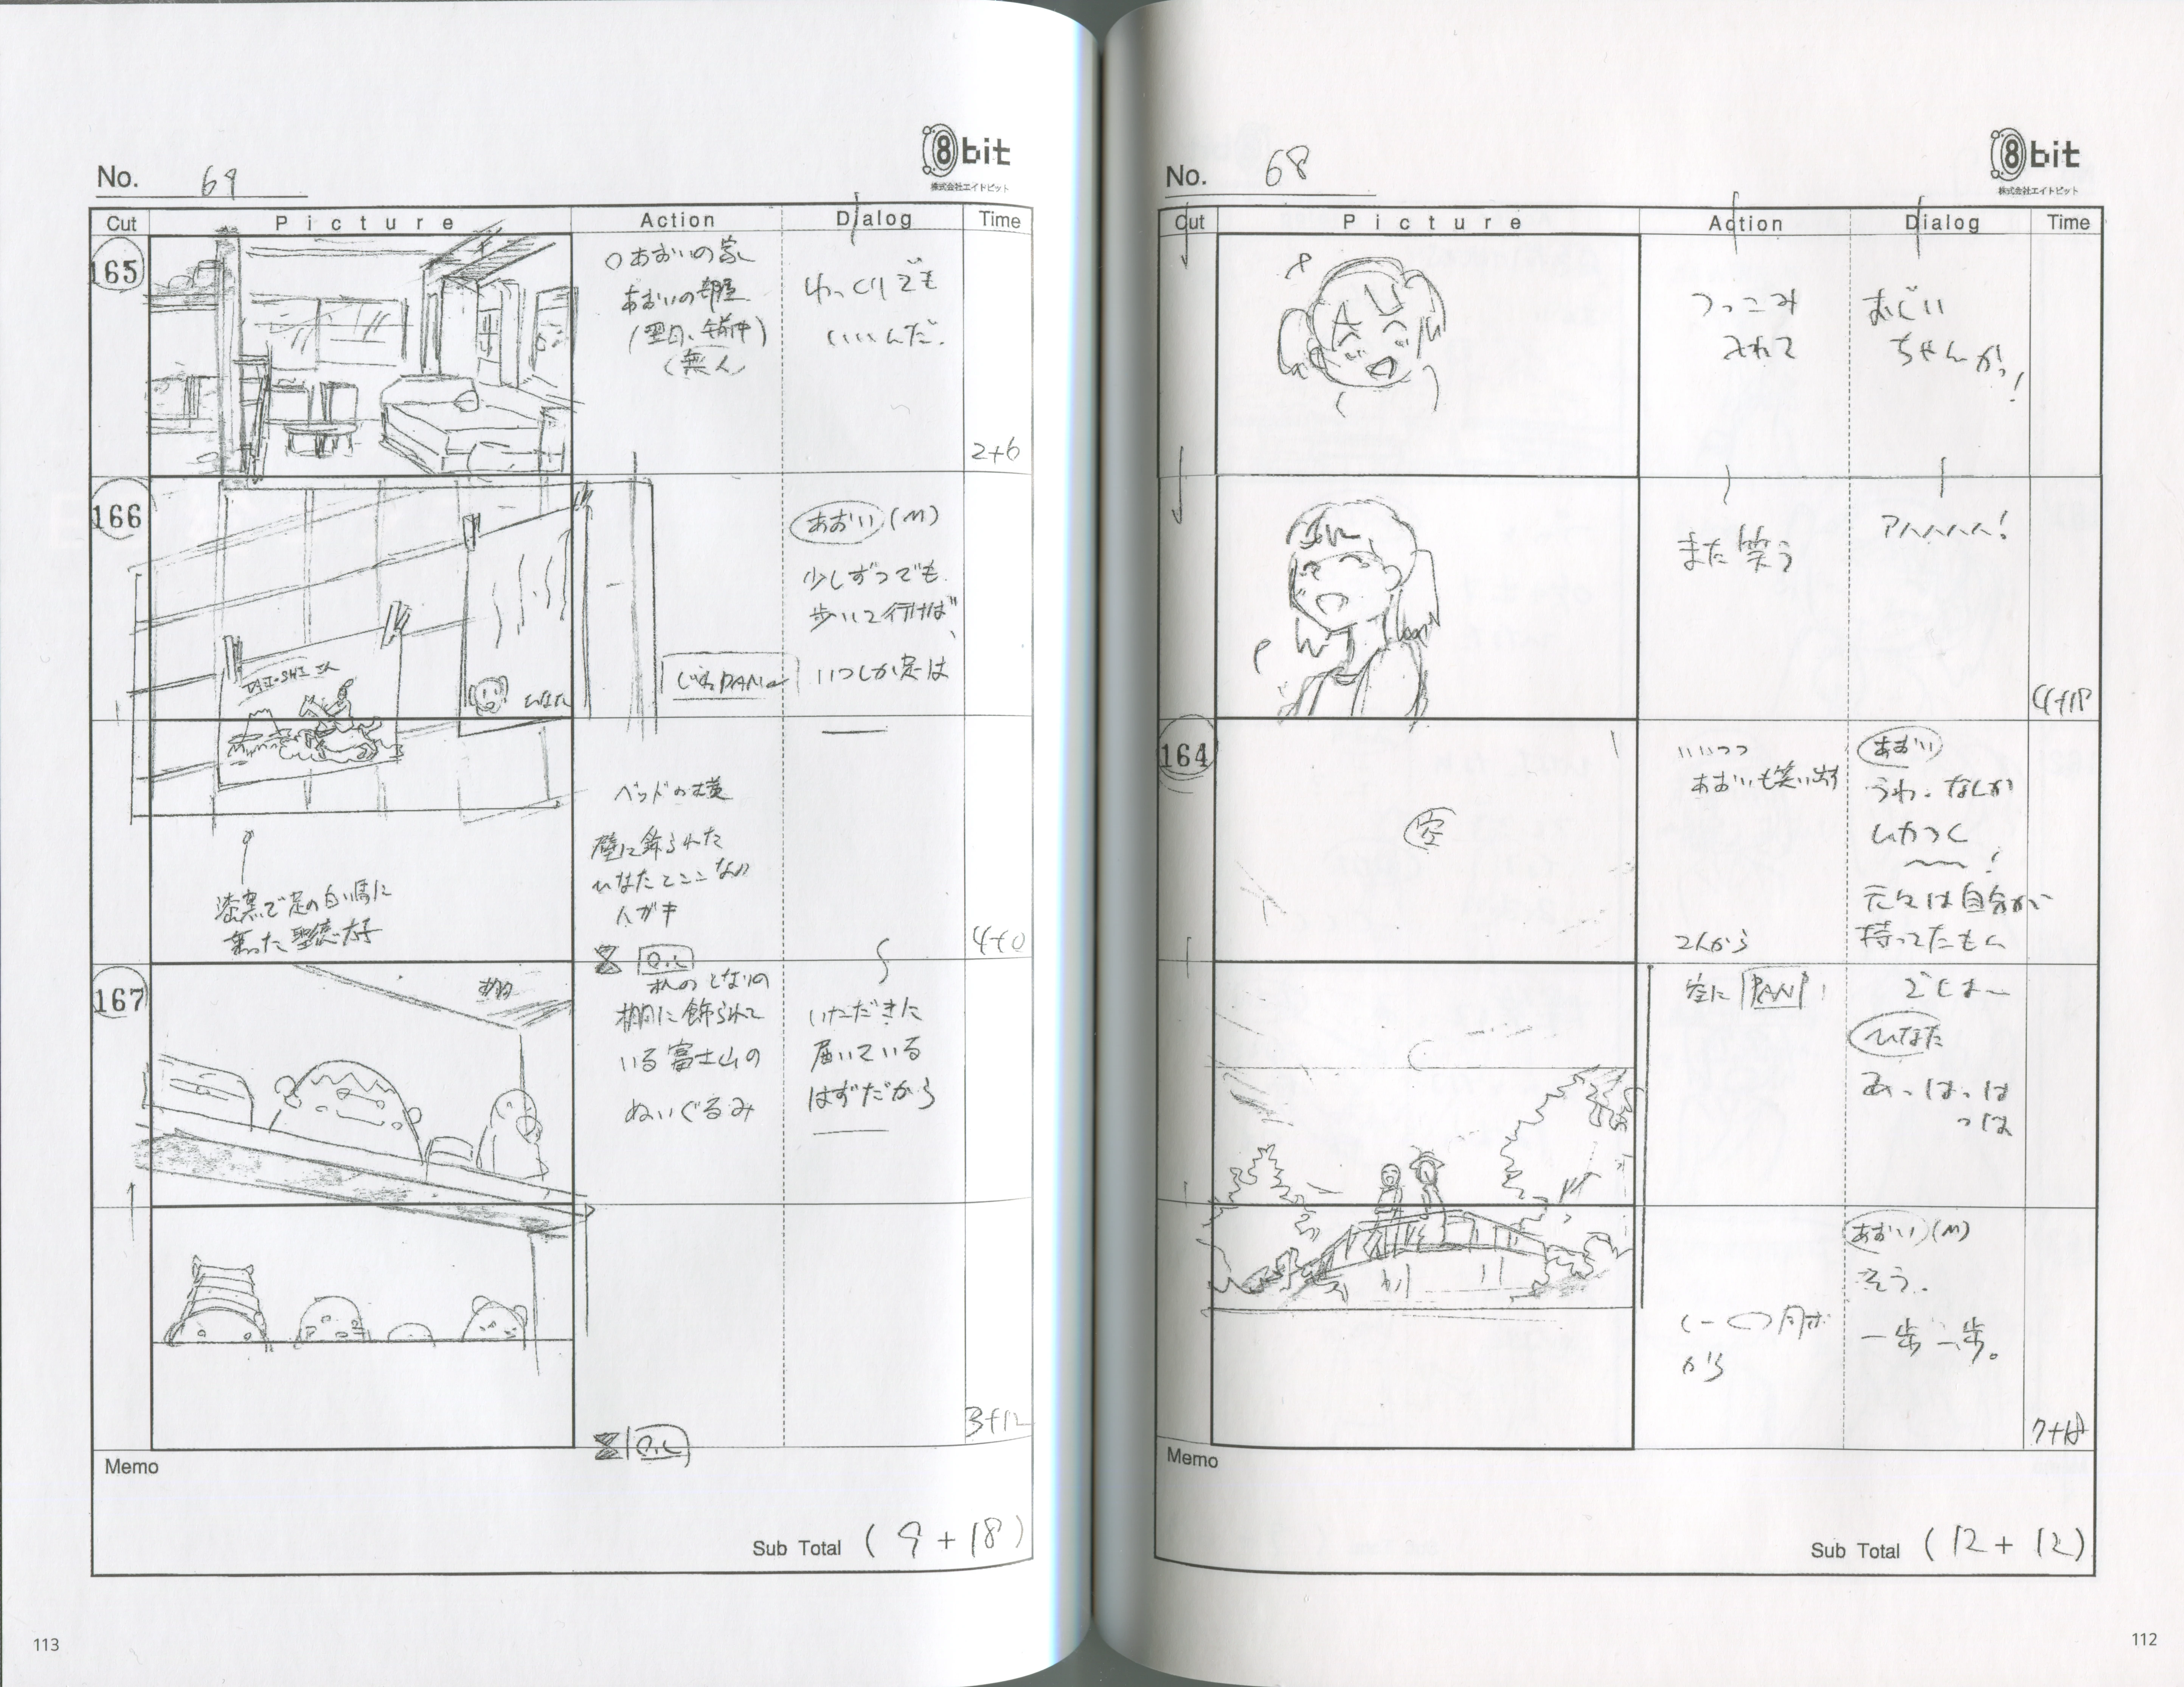 No. 68
8bit
株式会社エイトビット
Cut
Picture
Action
Dialog
Time
つっこみ
入れて
おじい
ちゃんかっ!
また笑う
アハハハハ!
4+18
164
空
いいつつ
あおいも笑い出す
あおい
うわ、なんか
ムカつく
〜〜!
元々は自分が
持ってたもん
2人から
空にPAN
でしょ〜
ひなた
あっはっは
っは
あおい(M)
そう、
一歩一歩。
から
7+18
Memo
Sub Total (12+12)
112
No. 69
8bit
株式会社エイトビット
Cut
Picture
Action
Dialog
Time
165
○あおいの家
あおいの部屋
(翌日、午前中)
(無人)
ゆっくりでも
いいんだ、
2+6
166
TAI-SHI
ひなた
じわPAN
あおい(M)
少しずつでも
歩いて行けば、
いつしか足は
ベッドの横
壁に飾られた
ひなたとここなの
ハガキ
漆黒で足の白い馬に
乗った聖徳太子
O.L
4+0
167
棚
机のとなりの
棚に飾られて
いる富士山の
ぬいぐるみ
いただきに
届いている
はずだから
3+12
O.L
Memo
Sub Total (9+18)
113